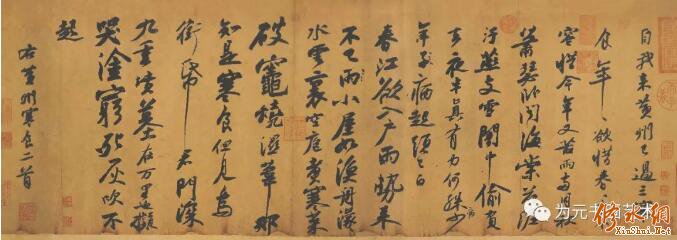 自我來黃州已過三寒
食年〻欲惜春〻去不
容惜今年又苦雨兩月秋
蕭瑟卧聞海棠花泥
汙燕支雪闇中偷負
去夜半真有力何殊少
年子病起頭已白
春江欲入户雨勢来
不已雨小屋如漁舟濛〻
水雲裏空庖煮寒菜
破竈燒濕葦那
知是寒食但見烏
銜帋君門深
九重墳墓在万里也擬
哭塗窮死灰吹不
起
右黃州寒食二首
修水网